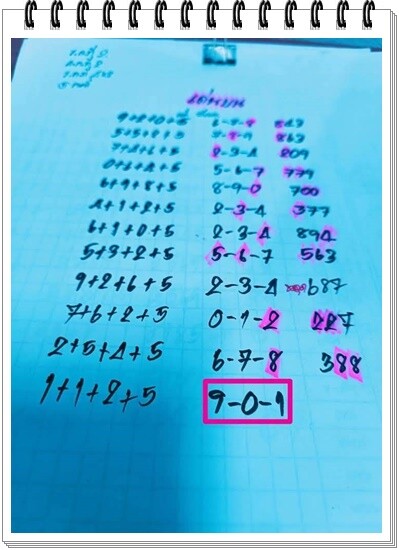 9+2+0+5 6-7-8 847
5+5+2+5 7-8-9 863
7+4+6+5 2-3-4 209
0+6+4+5 5-6-7 779
6+9+8+5 8-9-0 700
4+1+2+5 2-3-4 377
6+1+0+5 2-3-4 894
5+9+2+5 5-6-7 563
9+2+6+5 2-3-4 687
7+6+2+5 0-1-2 227
2+5+4+5 6-7-8 388
1+1+2+5 9-0-1